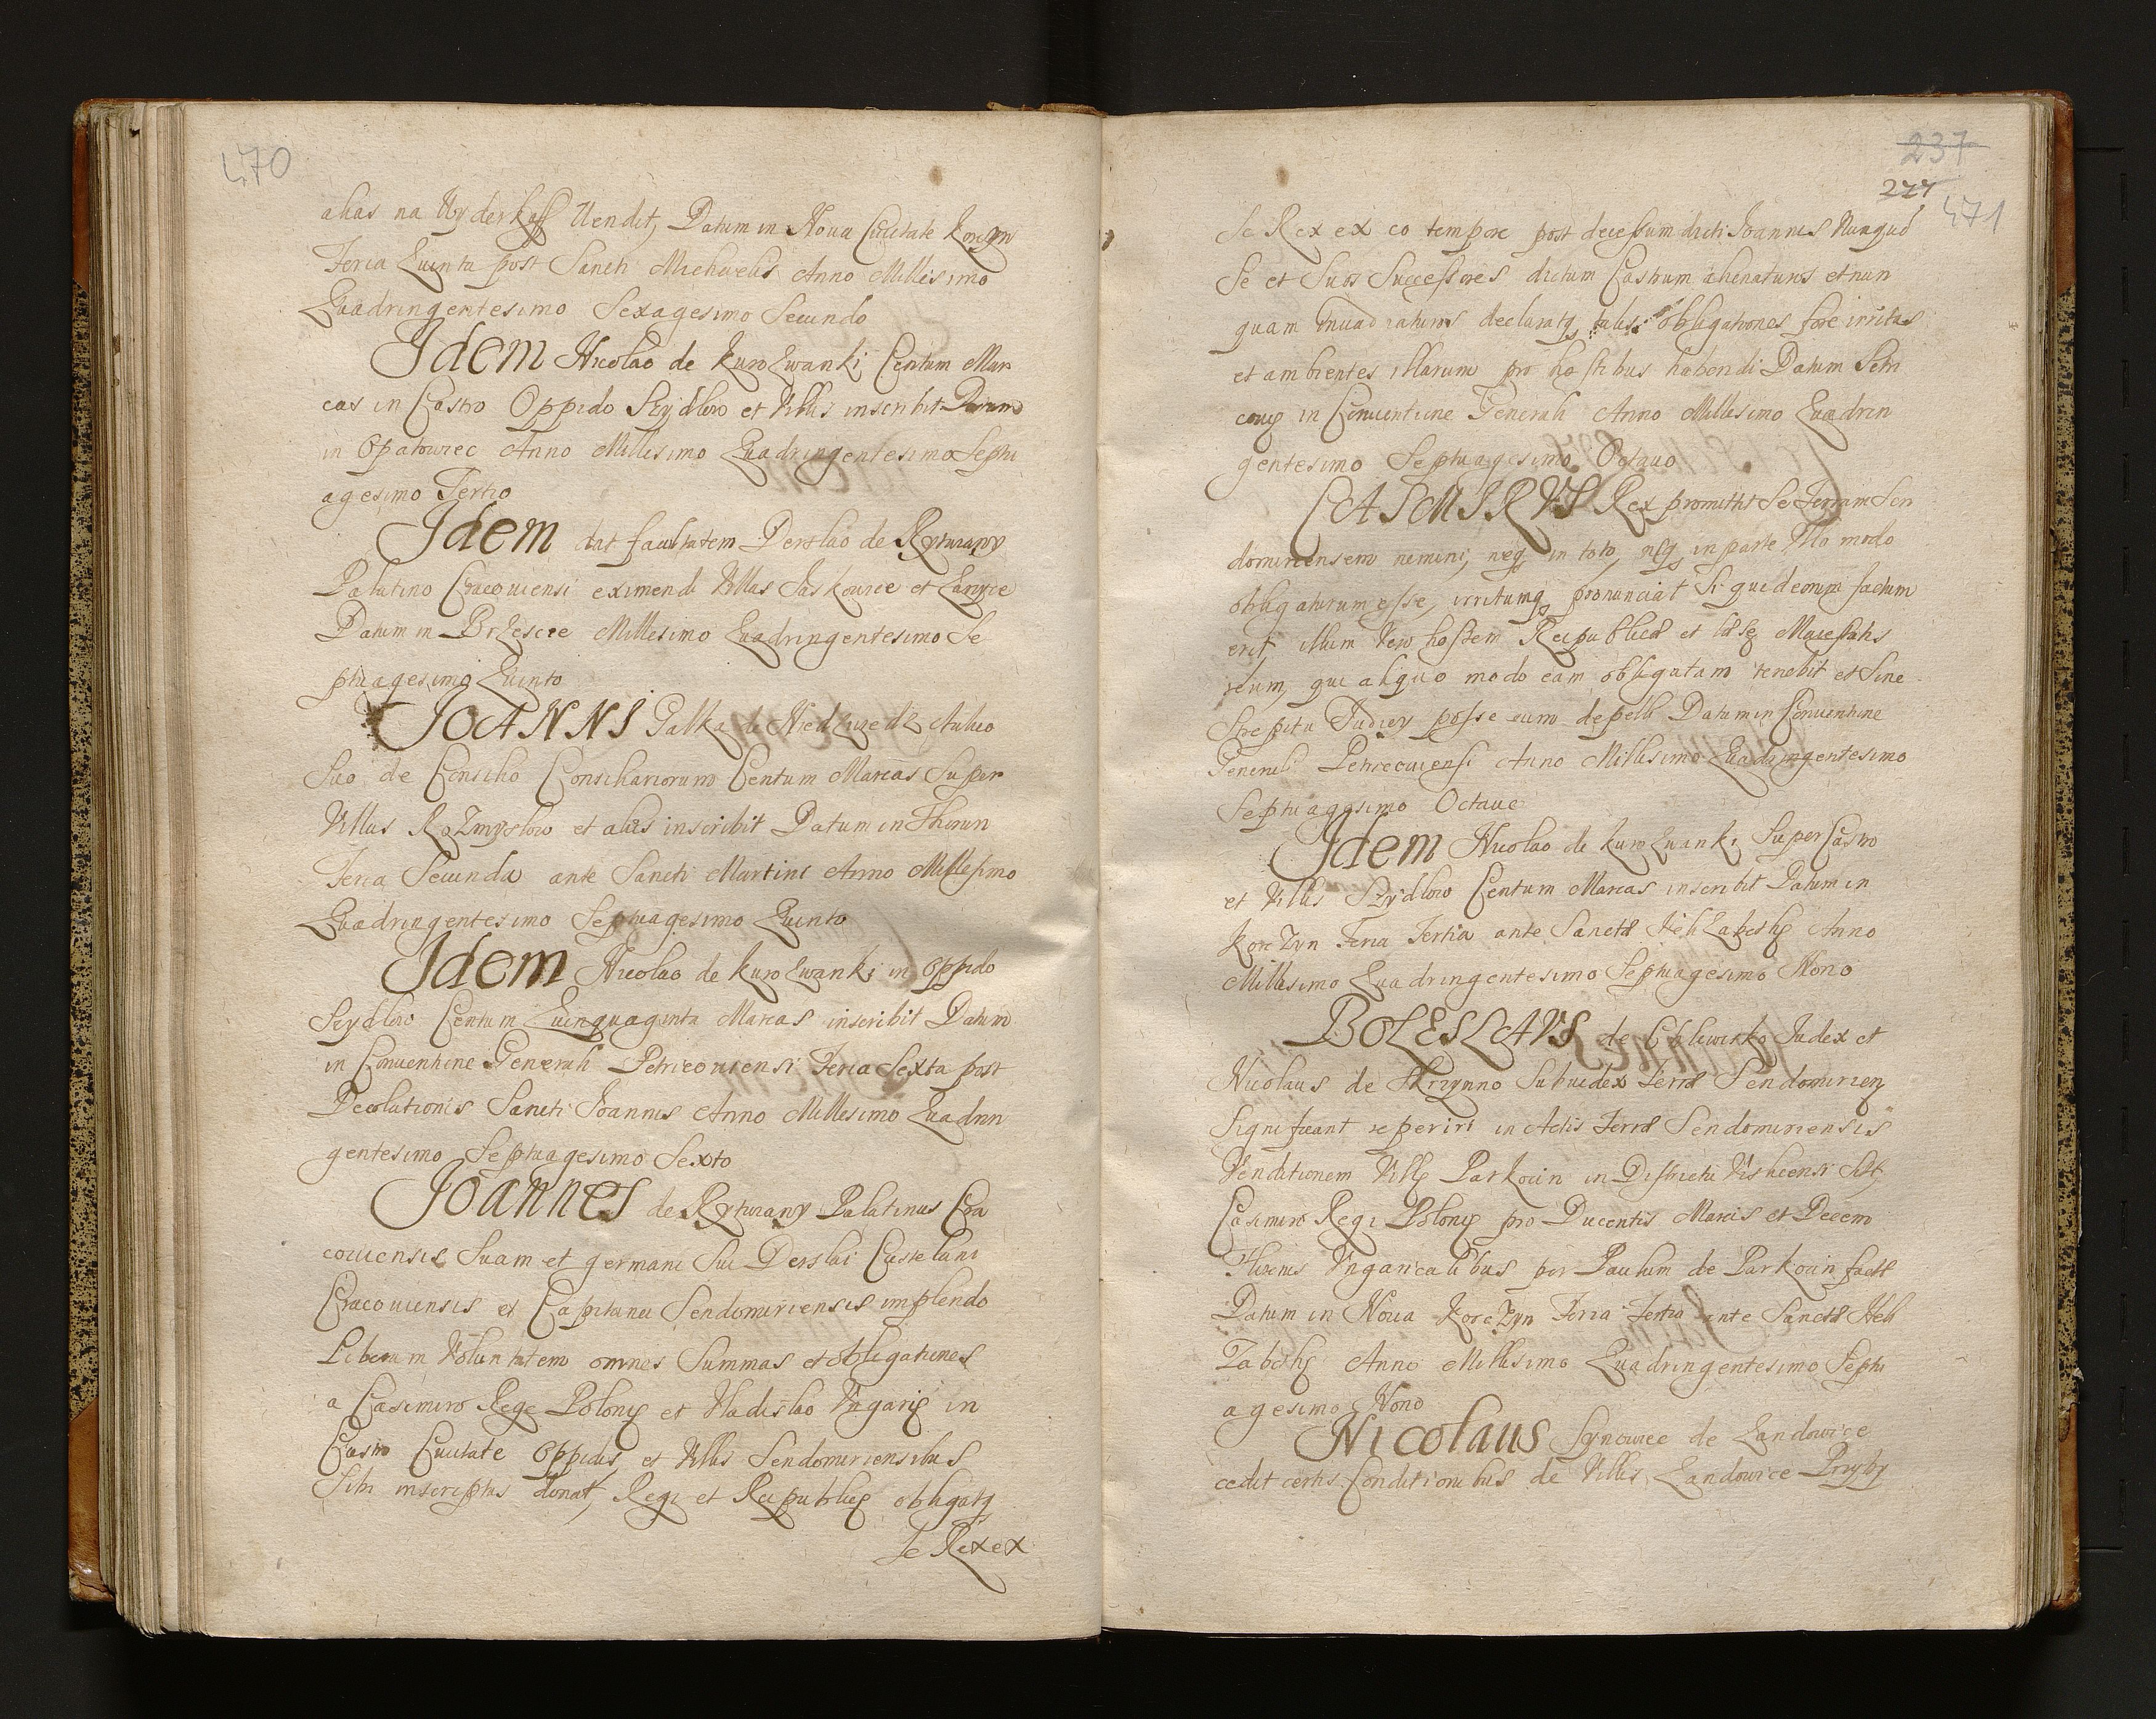 470
alias na Wyderkaff Vendit, Datum in Noua Ciuitate Korczyn
Feria Quinta post Sancti Michaelis Anno Millesimo
Quadringentesimo Sexagesimo Secundo
Idem Nicolao de Kurozwanki Centum Mar
cas in Castro Oppido Szydlow et Villis inscribit Datum
in Opatowiec Anno Millesimo Quadringentesimo Septu
agesimo Tertio
Idem dat facultatem Derslao de Rytwany
Palatino Cracouiensi eximendi Villas Jaskowice et
Datum in Brzescie Millesimo Quadringentesimo Se
ptuagesimo Quinto
IOANNI Galka de Niedzwedz Aulico
Suo de Consilio Consiliariorum Centum Marcas Super
Villas Rozmyslow et alias inscribit Datum in Thorun
Feria Secunda ante Sancti Martini Anno Millesimo
Quadringentesimo Septuagesimo Quinto
Idem Nicolao de Kurozwanki in Oppido
Szydlow Centum Quinquaginta Marcas inscribit Datum
in Conuentione Generali Petricouiensi Feria Sexta post
Decolationis Sancti Ioannis Anno Millesimo Quadrin
gentesimo Septuagesimo Sexto
Joannes de Rytwany Palatinus Cra
couiensis Suam et germani Sui Derslai Castelani
Cracouiensis et Capitanei Sendomiriensis implendo
Liberam Voluntatem omnes Summas et obligationes
a Casimiro Rege Polonię et Vladislao Vngarię in
Castro Ciuitate Oppidis et Villis Sendomiriensibus
Sibi inscriptas donat, Regi et Reipublicę obligatq
Se Rex ex
237
277
471
Se Rex ex eo tempore post decessum dicti Ioannis Nunquã
Se et Suos Successores dictum Castrum alienaturos et nun
quam Inuadiaturos declaratq tales obligationes fore irritas
et ambientes illarum pro hostibus habendi Datum Petri
couię in Conuentione Generali Anno Millesimo Quadrin
gentesimo Septuagesimo Octauo
CASIMIRVS Rex promittit Se Terram Sen
domiriensem nemini, neq in toto, neq in parte Vllo modo
obligaturum esse, irritumq pronunciat Si quid eorum factum
erit illum Vero hostem Reipublicæ et læsę Maiestatis
reum, qui aliquo modo eam obligatam tenebit et Sine
Strepitu Iudicy posse eum depelli Datum in Conuentione
Generali Petricouiensi Anno Millesimo Quadringentesimo
Septuagesimo Octauo
Idem Nicolao de Kurozwanki Super Castro
et Villis Szydlow Centum Marcas inscribit Datum in
Korczyn Feria Tertia ante Sanctæ Helizabethę Anno
Millesimo Quadringentesimo Septuagesimo Nono
BOLESLAVS de Iudex et
Nicolaus de Skrzynno Subiudex Terræ Sendomirien
Significant reperiri in Actis Terræ Sendomiriensis
Venditionem Villę Parkocin in Districtu Visliciensi Sitę
Casimiro Regi Polonię pro Ducentis Marcis et Decem
Florenis Vngaricalibus per Paulum de Parkocin factæ
Datum in Noua Korczyn Feria Tertia ante Sanctæ Heli
Zabethę Anno Millesimo Quadringentesimo Septu
agesimo Nono
Nicolaus Synowiec de Landowice
cedit certis Conditionibus de Villis Landowice Przyby